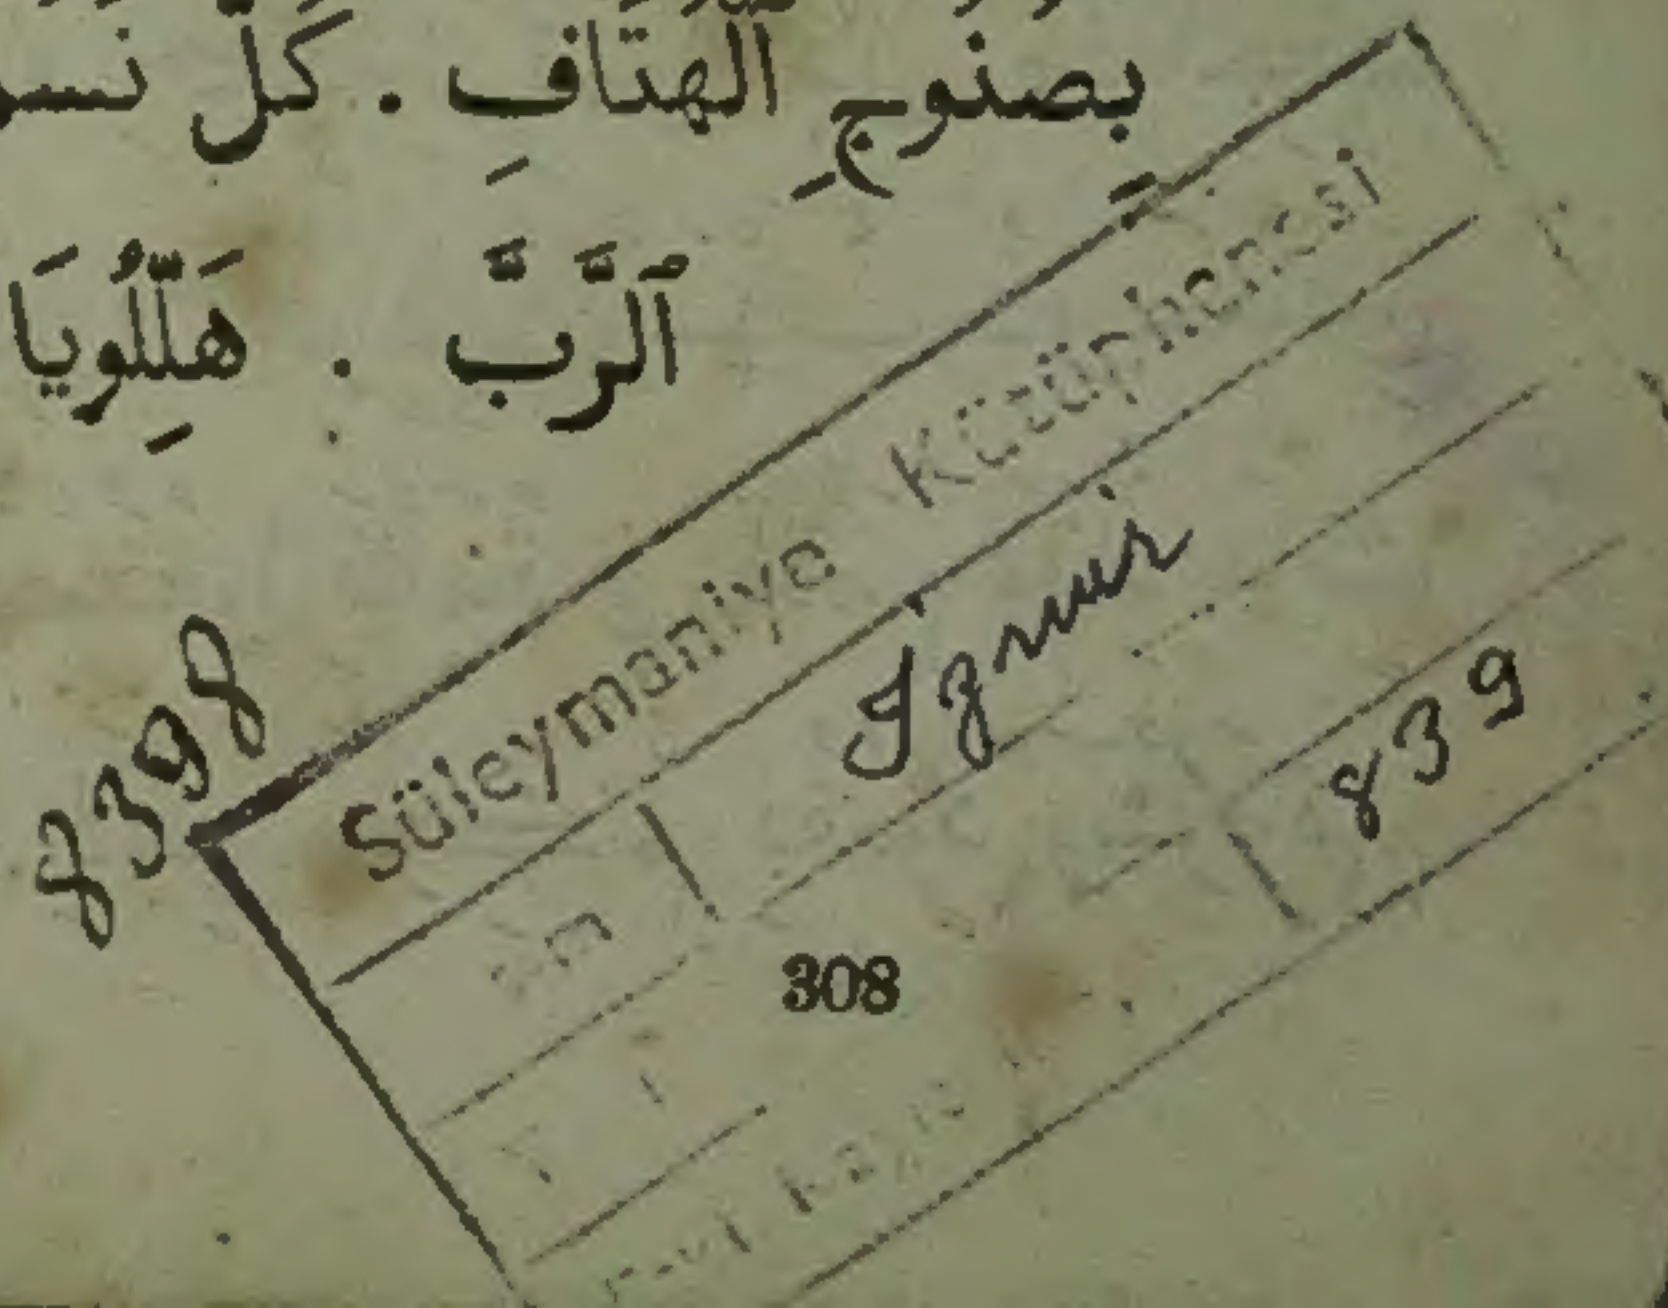 بِصُنُوجِ ٱلْهُتَافِ . كُلُّ
ٱلرَّبَّ . هَلِّلُويَا
8398
Süleymaniye Kütüphanesi
İzmir
839
308